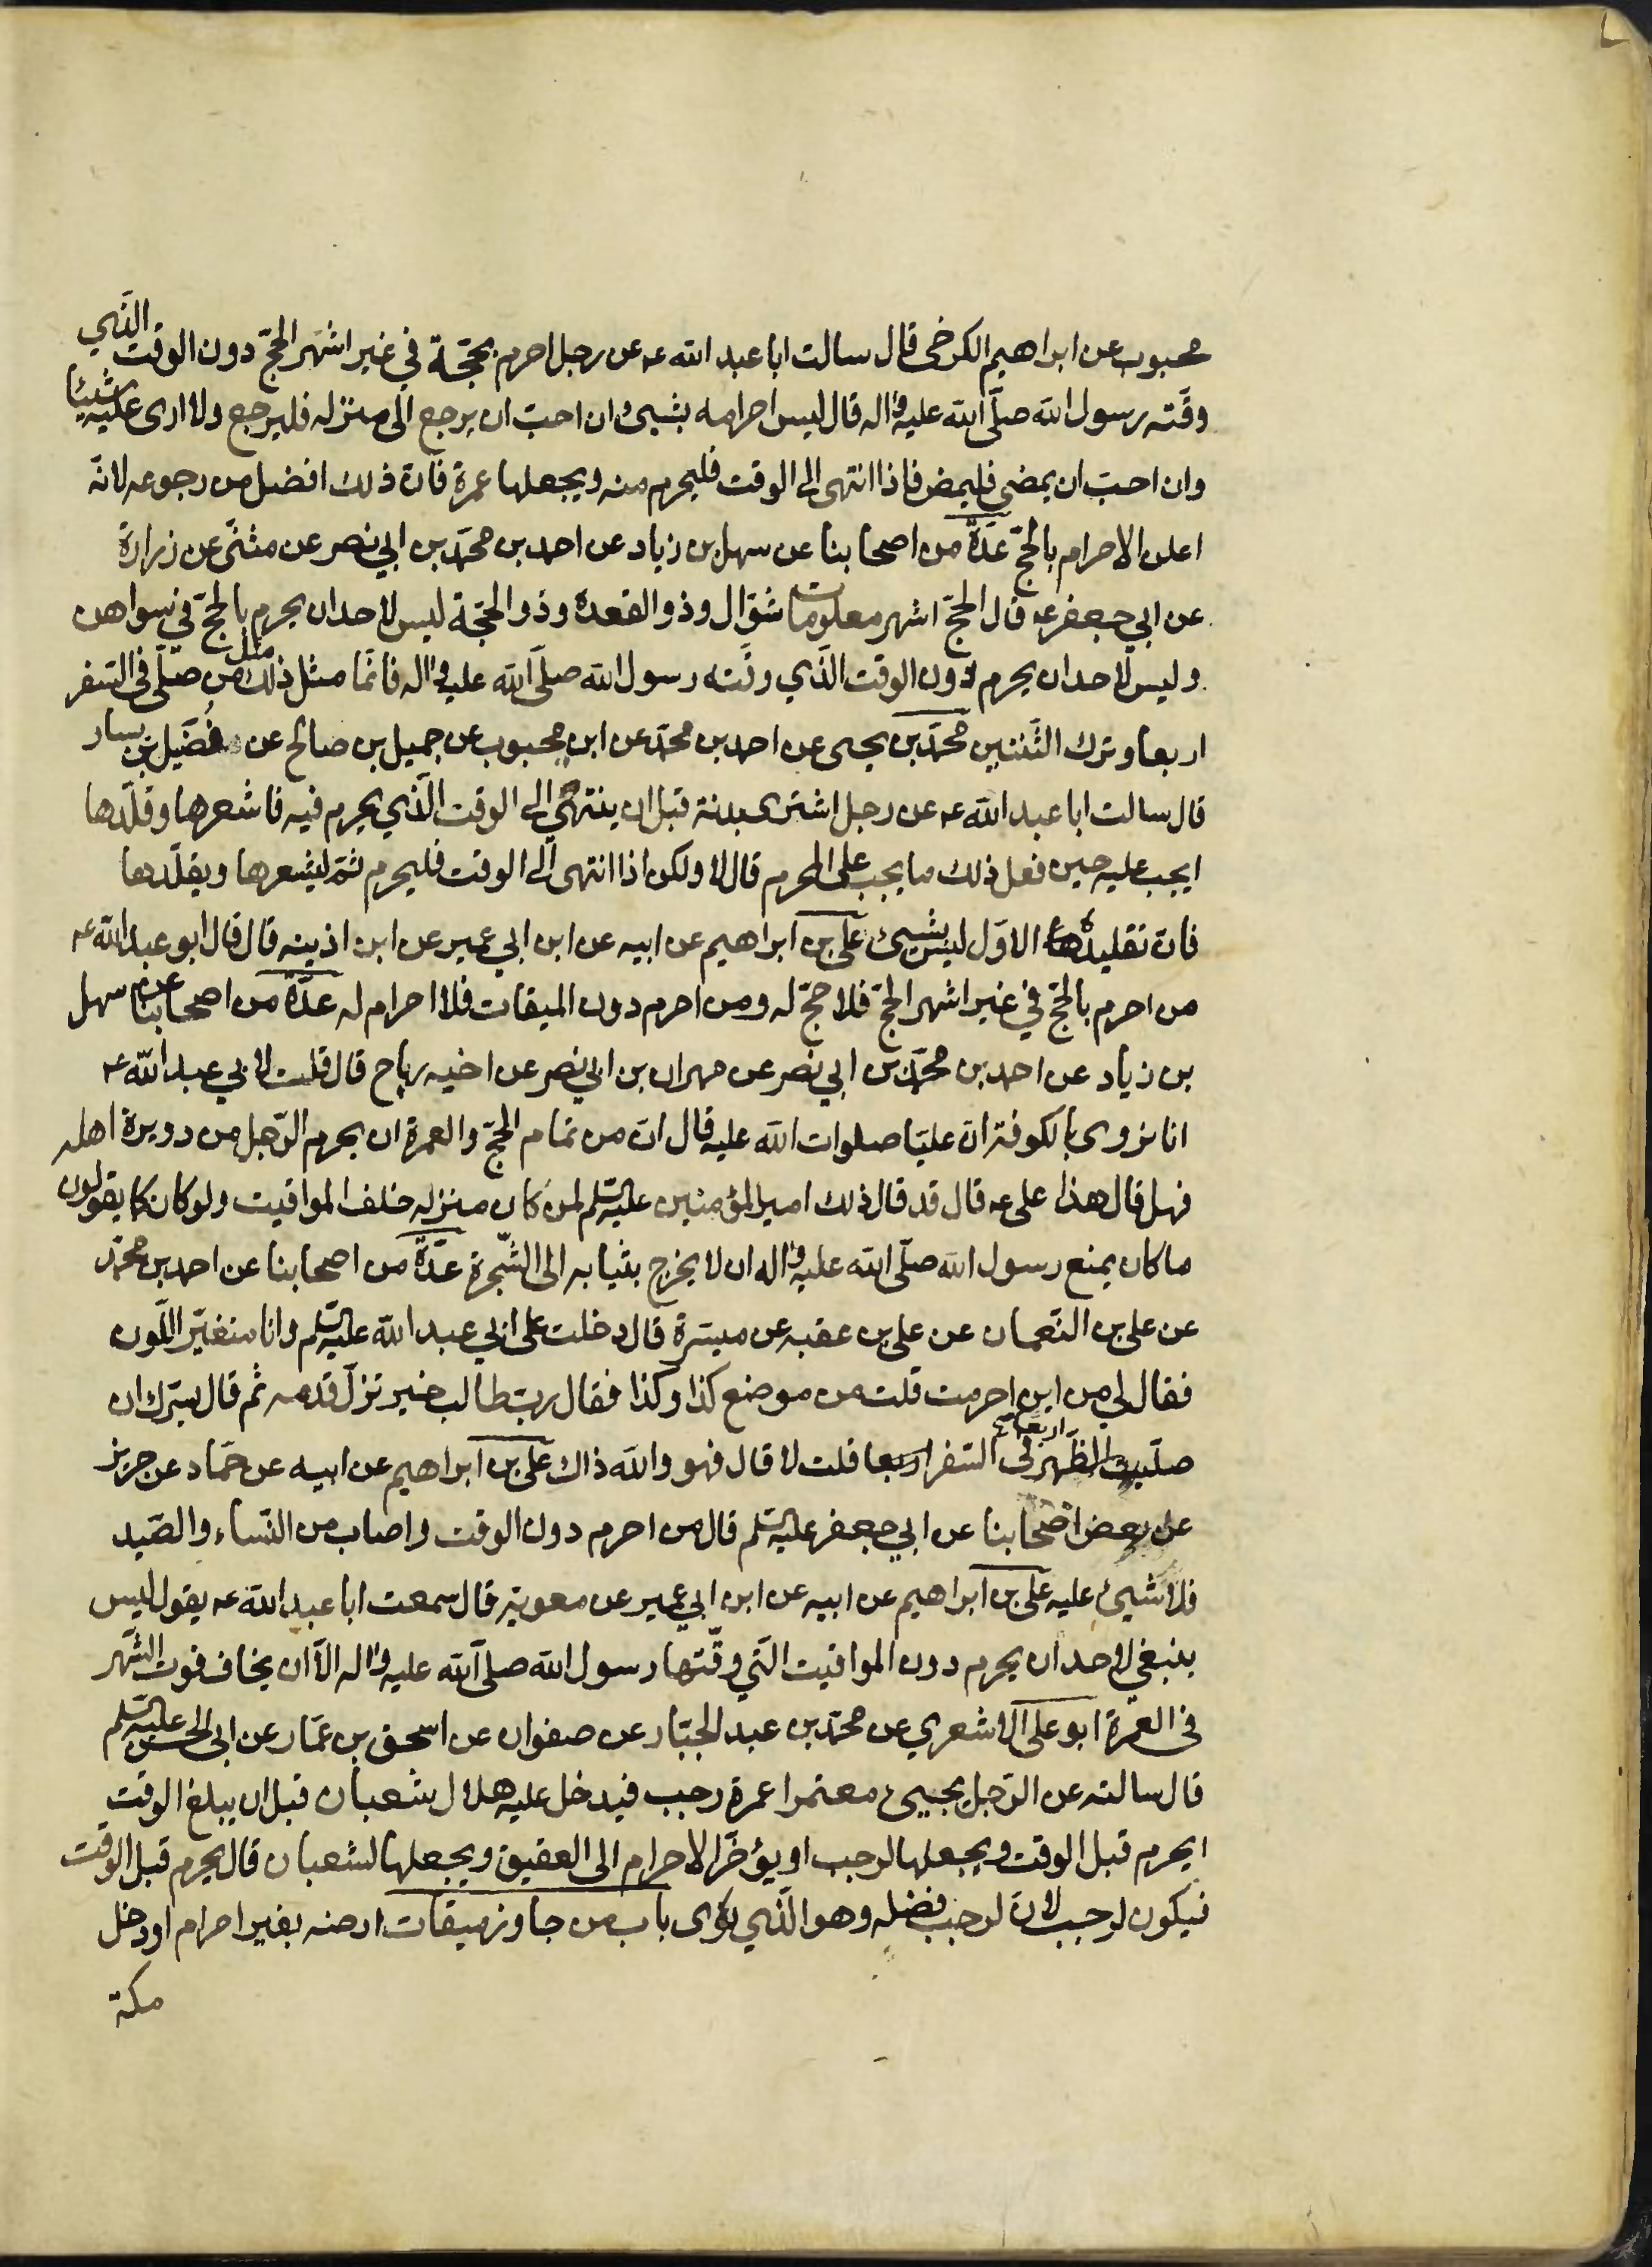 محبوب عن ابراهيم الكرخى قال سالت ابا عبد الله عه عن رجل احرم بحجّة في غير اشهر الحجّ دون الوقت الذي
وقّته رسول الله صلّى الله عليه واله قال ليس احرامه بشيئ وان احبّ ان يرجع الى منزله فليرجع ولا ارى عليه شيئا
وان احبّ ان يمضى فليمض فاذا انتهى الى الوقت فليحرم منه ويجعلها عمرة فانّ ذلك افضل من رجوعه لانّه
اعلن الاحرام بالحجّ عدّة من اصحابنا عن سهل بن زياد عن احمد بن محمّد بن ابي نصر عن مثنّى عن زرارة
عن ابي جعفر عه قال الحجّ اشهر معلومات شوّال وذو القعدة وذو الحجّة ليس لاحد ان يحرم بالحجّ في سواهن
وليس لاحد ان يحرم دون الوقت الذي وقّته رسول الله صلّى الله عليه واله فانّما مثل ذلك مثل من صلّى في السّفر
اربعا وترك الثّنتين محمّد بن يحيى عن احمد بن محمّد عن ابن محبوب عن جميل بن صالح عن فُضَيل بن يسار
قال سالت ابا عبد الله عه عن رجل اشترى بدنة قبل ان ينتهي الى الوقت الّذي يحرم فيه فاشعرها وقلّدها
ايجب عليه حين فعل ذلك ما يجب على المحرم قال لا ولكن اذا انتهى الى الوقت فليحرم ثمّ ليشعرها ويقلّدها
فانّ تقليده الاوّل ليس بشيئ علي بن ابراهيم عن ابيه عن ابن ابي عمير عن ابن اذينه قال قال ابو عبد الله عه
من احرم بالحجّ في غير اشهر الحجّ فلا حجّ له ومن احرم دون الميقات فلا احرام له عدّة من اصحابنا عن سهل
بن زياد عن احمد بن محمّد بن ابي نصر عن مهران بن ابي نصر عن اخيه رباح قال قلت لابي عبد الله عه
انا نروى بالكوفة ان عليّا صلوات الله عليه قال انّ من تمام الحجّ والعمرة ان يحرم الرّجل من دويرة اهله
فهل قال هذا على عه قال قد قال ذلك امير المؤمنين عليه السّلم لمن كان منزله خلف المواقيت ولو كان كما يقولون
ما كان يمنع رسول الله صلّى الله عليه واله ان لا يخرج بثيابه الى الشّجرة عدّة من اصحابنا عن احمد بن محمّد
عن على بن النّعمان عن على بن عقبه عن ميسّرة قال دخلت على ابي عبد الله عليه السّلم وانا متغيّر اللّون
فقال لي من اين احرمت قلت من موضع كذا وكذا فقال ربّ طالب خير تزلّ قدمه ثم قال يسرّك ان
صلّيت الظّهر في السّفر اربعا قلت لا قال فهو والله ذاك على بن ابراهيم عن ابيه عن حمّاد عن حريز
عن بعض اصحابنا عن ابي جعفر عليه السّلم قال من احرم دون الوقت واصاب من النّساء والصّيد
فلا شيئ عليه على بن ابراهيم عن ابيه عن ابن ابي عمير عن معوية قال سمعت ابا عبد الله عه يقول ليس
ينبغي لاحد ان يحرم دون المواقيت الّتي وقّتها رسول الله صلّى الله عليه واله الّا ان يخاف فوت الشّهر
في العمرة ابو على الاشعري عن محمّد بن عبد الجبّار عن صفوان عن اسحق بن عمّار عن ابي الحسن عليه السّلم
قال سالته عن الرّجل يجيئ معتمرا عمرة رجب فيدخل عليه هلال شعبان قبل ان يبلغ الوقت
ايحرم قبل الوقت ويجعلها لرجب او يؤخّر الاحرام الى العقيق ويجعلها لشعبان قال يحرم قبل الوقت
فيكون لرجب لانّ لرجب فضله وهو الّذي نوى باب من جاوز ميقات ارضه بغير احرام او دخل
مكة